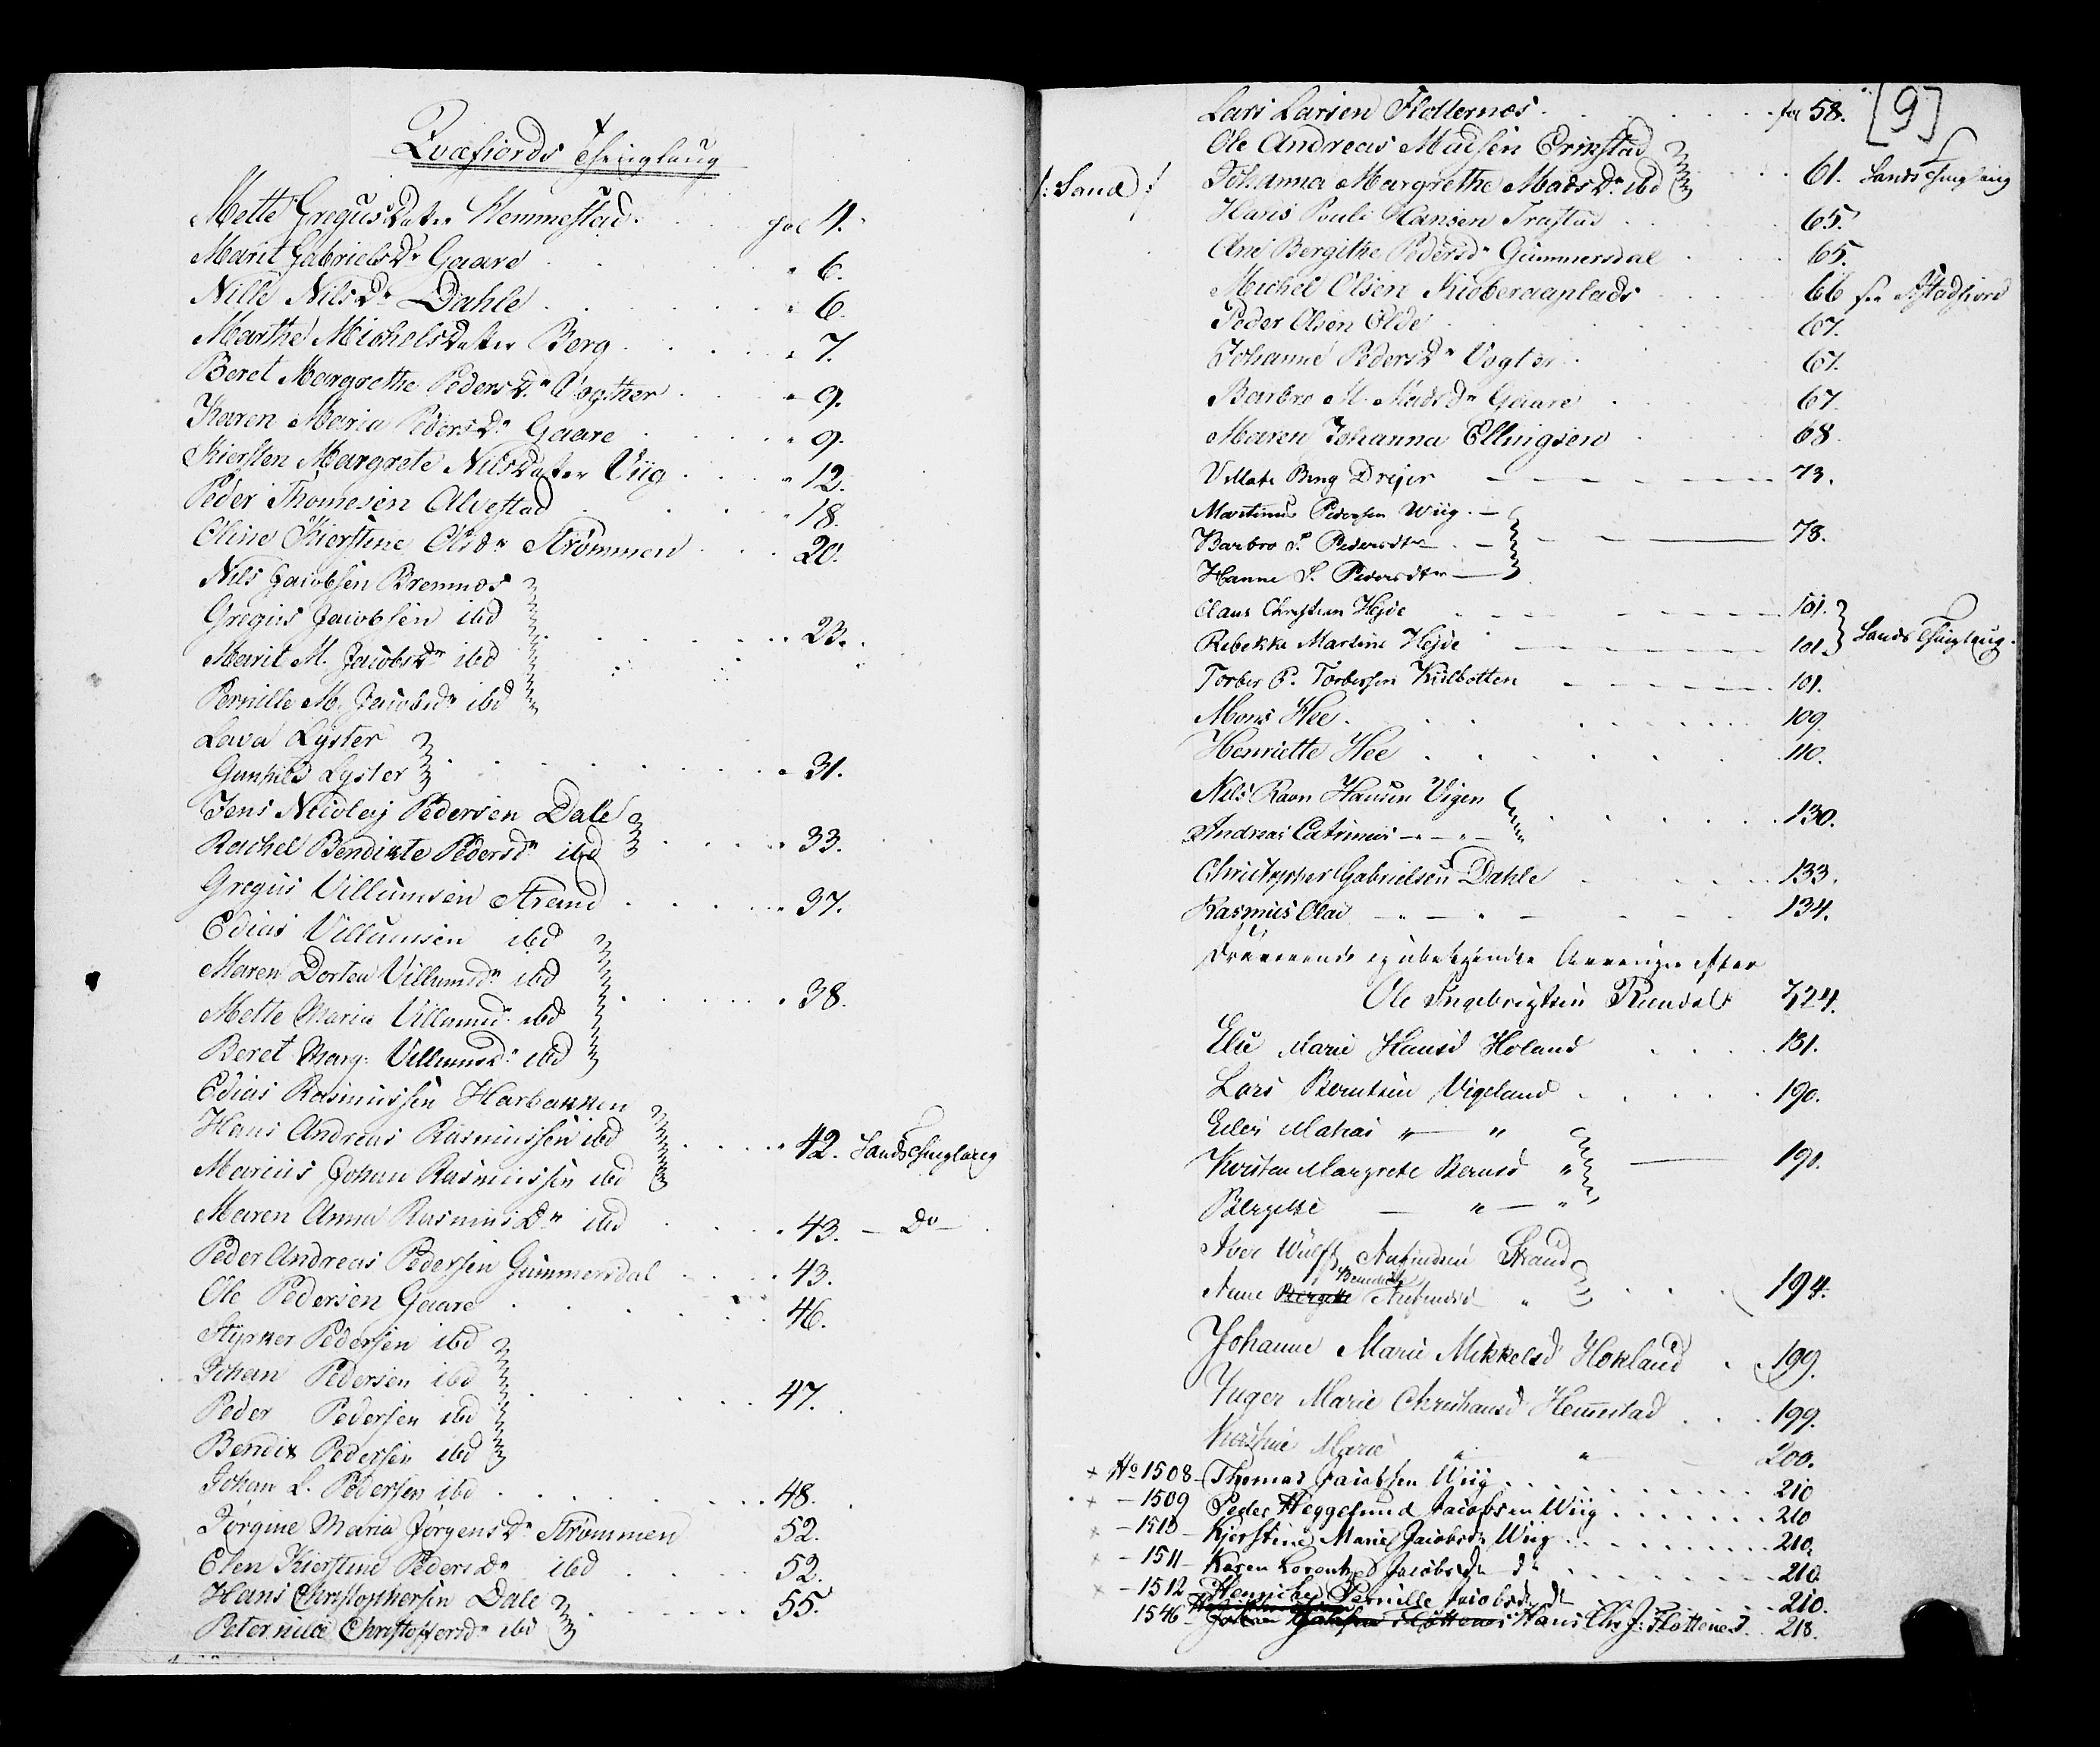 Qvæfjords Thinglaug
Mette GregusDater Hemmestad . . fol 4.
Marit Gabriels Dr Gaare . . . " 6.
Nille Nils Dr Dahle . . . " 6.
Marthe MichelsDatter Berg . . . " 7.
Beret Margrethe Peders Dr Vogther . . " 9.
Karen Maria Peders Dr Gaare . . . " 9.
Kiersten Margrete NilsDatter Viig . . . " 12.
Peder Thomesen Alvestad . . . " 18.
Oline Kierstine Olsdr Strømmen . . . 20.
Nils Jacobsen Bremnes
Gregus Jacobsen ibd . . . 23.
Marit M. Jacobs Dr ibd
Pernille M. Jacobsdr ibd
Lava Lyster
Gunhild Lyster . . . " 31.
Jens Nicolaij Pedersen Dale
Rachel Bendikte Pedersdr ibd . . . " 33.
Gregus Villumsen Strand . . . " 37.
Edias Villumsen ibd
Maren Dortea Villumsdr ibd
Mette Maria Villumsdr ibd . . . " 38.
Beret Marg: Villumsdr ibd
Edias Rasmussen Harbakken
Hans Andreas Rasmussen ibd . . . " 42. Sands Thinglaug
Marius Johan Rasmussen ibd
Maren Anna Rasmus Dr ibd . . . " 43. — Do —
Peder Andreas Pedersen Gummersdal . . . " 43.
Ole Pedersen Gaare . . . 46.
Styrker Pedersen ibd
Johan Pedersen ibd
Peder Pedersen ibd . . . 47.
Bendix Pedersen ibd
Johan L. Pedersen ibd . . . 48.
Jørgine Maria Jørgens Dr Strømmen 52.
Elen Kierstine Peders Dr ibd . . . 52.
Hans Christophersen Dale . . . 55.
Peternille Christoffersdr ibd
[9]
Lars Larsen Flotternes . . . fol 58.
Ole Andreas Madsen Erikstad
/: Sand :/ Johanna Margrethe Mads Dr ibd . . . 61. Sands Thinglaug
Hans Povel Hansen Trastad . . . 65.
Ane Bergithe Pedersdr Gummersdal . . . 65.
Michel Olsen Kioberaaplads . . . 66
Peder Olsen Elde . . . 67.
Johanne Peders Dr Vogter . . . 67.
Barbro M. Mads Dr Gaare . . . 67.
Maren Johanna Ellingsen . . . 68.
Villate Bing Drejer — — — 73.
Martinus Pedersen Wiig. —
Barbro P. Pedersdtr — . — 78.
Hanne S. Pedersdtr —
Claus Christian Hejde — — — 101.
Rebekka Martine Hejde — — — 101. Sands Thinglaug.
Torber P. Torbersen Kulbotten — — — 101.
Mons Hee . . . 109
Henriette Hee . . . 110.
Nils Ravn Hansen Vigen . . . 130.
Andreas Catrinus — " —
Christopher Gabrielsen Dahle . . . 133.
Rasmus Olai — " — " — 134.
Ole Ingebrigtsen 724.
Else Marie Hansd Holand . . . 181.
Lars Berntsen Vigeland . . . 190.
Edias Mathias " — "
Kirsten Margrete Berntsd " — 191.
Bergitte — " — "
Iver Wulff Anfindsen Strand
Anne Bergitte Benedicte Anfindsd " . . . 194.
Johanne Marie Mikkelsd Hokland . 199.
Inger Marie Christiansd Hemestad . . . 199.
Marie " " 200.
+ No 1508 – Thomas Jacobsen Wiig . . . 210
+ – 1509 Peder Heggelund Jacobsen Wiig . . . 210
+ – 1510 – Kjerstine Marie Jacobsdr Wiig . . . 210.
+ – 1511 – Karen Lorentze Jacobsdr dr . . . 210
+ – 1512 – Henrikke Pernille Jacobsdr dr . . . 210.
1546 – Hans Chr. J. Flottenes . . 218.